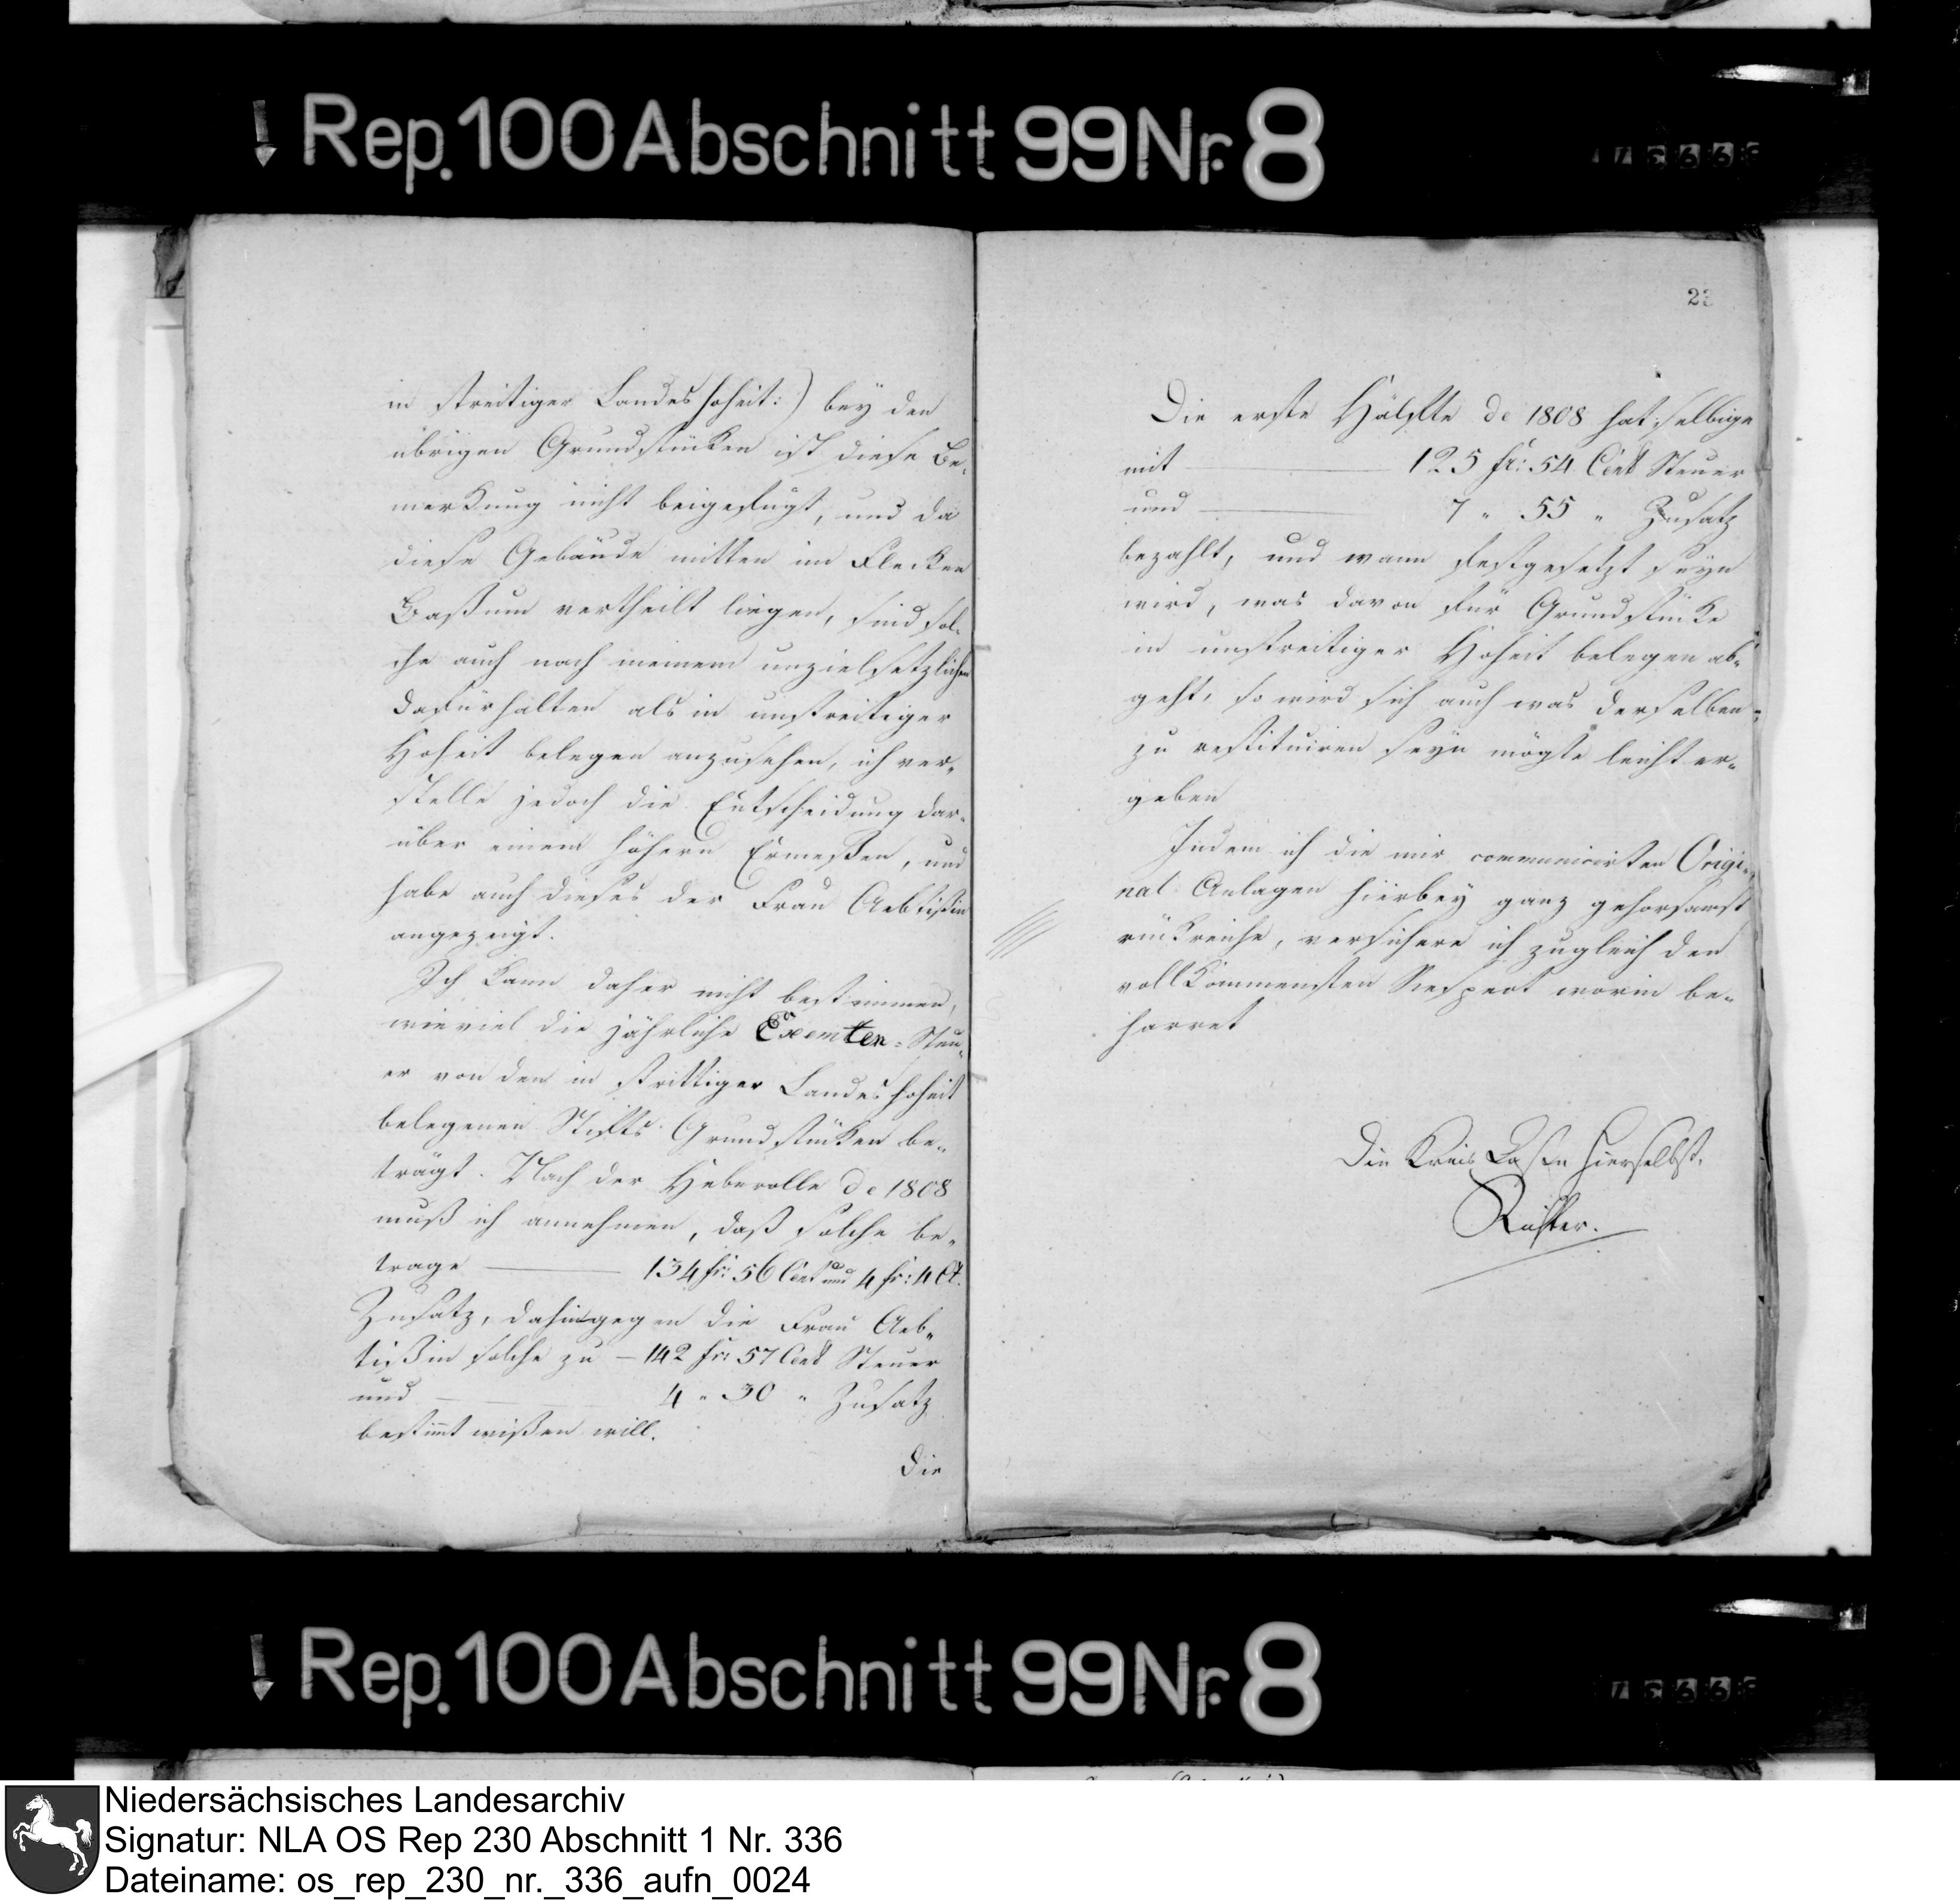 Rep. 100 Abschnitt 99 Nr. 8
in streitiger Landeshoheit:) bey den
übrigen Grundstücken ist diese Be-
merkung nicht beigefügt, und da
diese Gebäude mitten im Flecken
Baßum vertheilt liegen, sind sol-
che auch nach meinem
dafürhalten als in unstreitiger
Hoheit belegen anzusehen, ich ver-
stelle jedoch die Entscheidung dar-
über einem höhern Ermeßen, und
habe auch dieses der Frau Aebtißin
angezeigt.
Ich kann daher nicht bestimmen,
wieviel die jährliche Exemten-Steu-
er von den in strittiger Landeshoheit
belegenen Stifts Grundstücken be-
trägt. Nach der Heberolle de 1808
muß ich annehmen, daß solche be-
trage — 134 fr: 56 Cent und 4 fr: 4 Ct.
Zusatz, dahingegen die Frau Aeb-
tißin solche zu — 142 fr: 57 Cent Steuer
und — 4 " 30 " Zusatz
bestimt wißen will.
Die
23
Die erste Hälfte de 1808 hat selbige
mit — 125 fr: 54 Cent Steuer
und — 7 " 55 " Zusatz
bezahlt, und wann festgesetzt seyn
wird, was davon für Grundstücke
in unstreitiger Hoheit belegen ab-
geht, so wird sich auch was derselben
zu restituiren seyn mögte leicht er-
geben
Indem ich die mir communicirten Origi-
nal Anlagen hierbey ganz gehorsamst
rückreiche, versichere ich zugleich den
vollkommensten Respect worin be-
harret
Die Kreis Casse hierselbst.
Rep. 100 Abschnitt 99 Nr. 8
Niedersächsisches Landesarchiv
Signatur: NLA OS Rep 230 Abschnitt 1 Nr. 336
Dateiname: os_rep_230_nr._336_aufn_0024